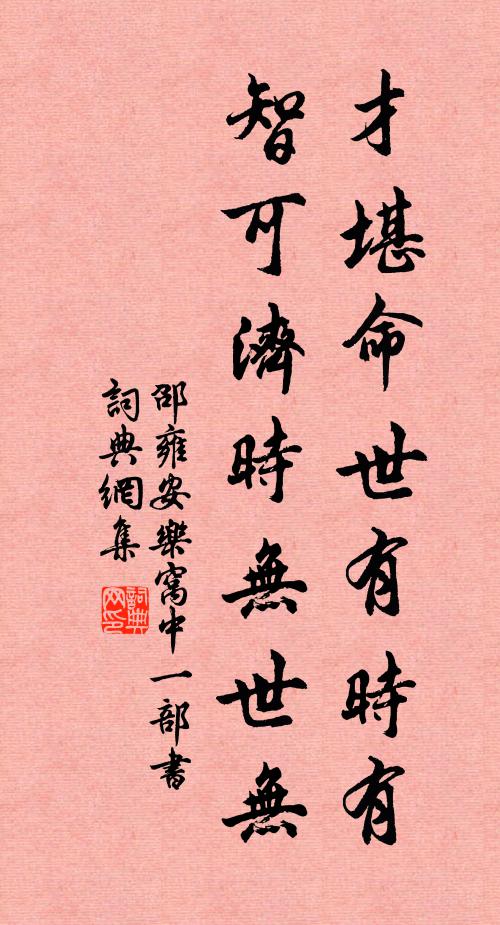 才堪命世有時有
智可濟時無世無
邵雍安樂窩中一部書
詞典網集
詞典网印